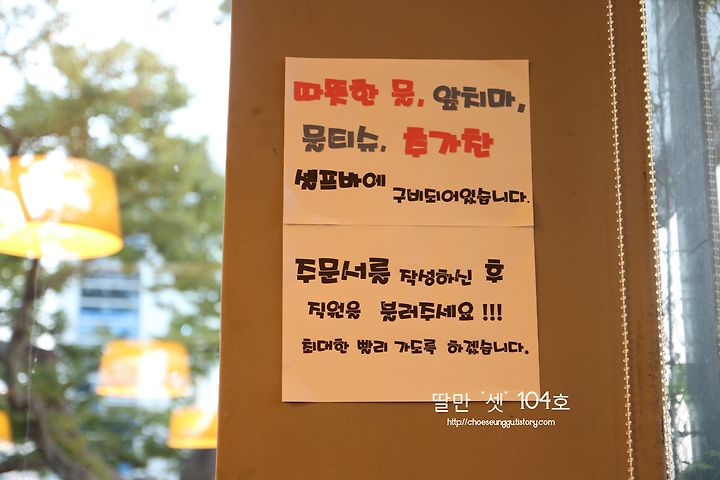 따뜻한 물, 앞치마,
물티슈, 추가찬
셀프바에 구비되어있습니다.
주문서를 작성하신 후
직원을 불러주세요!!!
최대한 빨리 가도록 하겠습니다.
딸만 "셋" 104호
http://choeseunggutistory.com